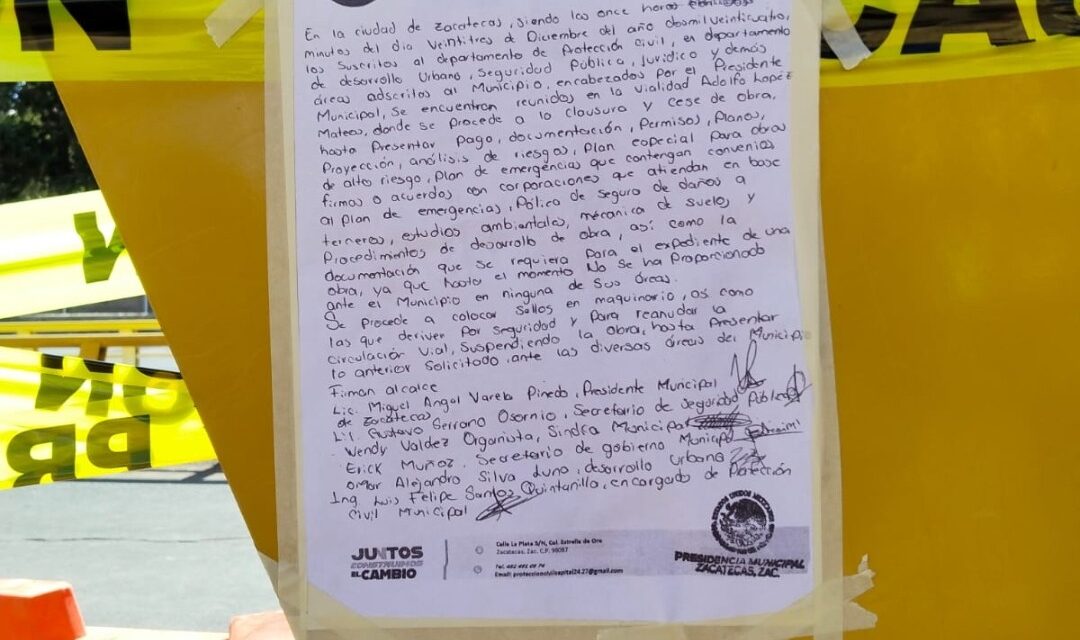 En la ciudad de Zacatecas, siendo las once horas
minutos del dia Veintitres de Diciembre del año dosmilveinticuatro,
los Suscritos al departamento de Protección Civil, en departamento
de desarrollo Urbano, Seguridad Pública, Juridico y demás
áreas adscritos al Municipio, encabezados por el Presidente
Municipal, Se encuentran reunidos en la Vialidad Adolfo López
Mateos, donde se Procede a la Clausura y cese de obra,
hasta Presentar Pago, documentación, Permisos, Planos,
Proyección, análisis de riesgos, Plan especial Para obras
de alto riesgo, Plan de emergencias que contengan convenios
firmas o acuerdos con corporaciones que atiendan en base
al Plan de emergencias, Pólica de Seguro de daños a
terneros, estudios ambiantales, mécanica de suelos y
Procedimientos de desarrollo de obra, así como la
documentación que se requiera Para el expediente de una
obra, ya que hasta el momento No Se ha Proporcionado
ante el Municipio en ninguna de Sus áreas.
Se Procede a colocar Sellos en maquinario, así como
las que deriven Por Seguridad y Para reanudar la
Circulación Vial, Suspendiendo la obra, hasta Presentar
lo anterior Solicitado, ante las diversas áreas del Municipio
Firman alcalce
Lic. Miguel Angel Varela Pinedo, Presidente Municipal
de Zacatecas
L.I. Gustavo Serrano Osornio, Secretario de Seguridad Pública
Wendy Valdez Organista, Sindica Municipal
Erick Muñoz, Secretario de gobierno Municipal
Omar Alejandro Silva Luna, desarrollo Urbano
Ing. Luis Felipe Santos Quintanilla, encargado de Protección
Civil Municipal
JUNTOS
CONSTRUIMOS
EL CAMBIO
Calle La Plata S/N, Col. Estrella de Oro
Zacatecas, Zac. C.P. 98087
Email: proteccioncivilcapital24.27@gmail.com
ESTADOS UNIDOS MEXICANOS
PRESIDENCIA MUNICIPAL
ZACATECAS, ZAC.